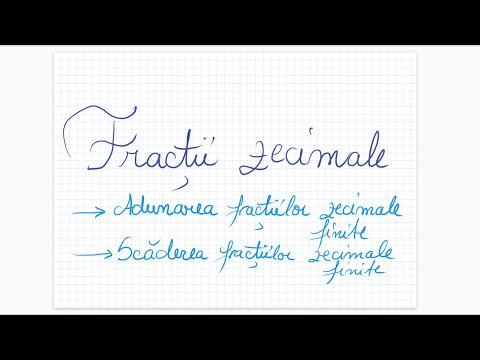 Fracții zecimale
→ Adunarea fracțiilor zecimale
finite
→ Scăderea fracțiilor zecimale
finite